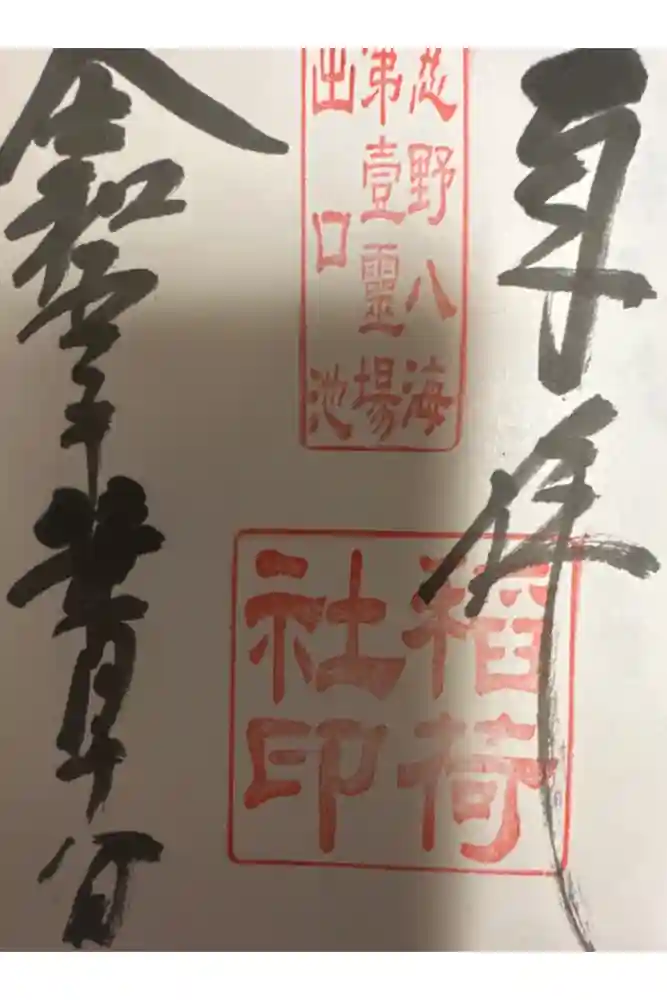 奉拝
忍野八海
第壹靈場
出口池
稲荷
社印
令和年葉月十八日